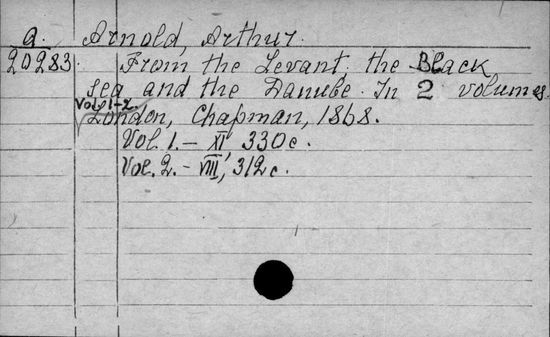 a. Arnold, Arthur.
20283. From the Levant: the Black
sea and the Danube. In 2 volumes.
Vol. 1-2.
London, Chapman, 1868.
Vol. 1.- XI, 330c.
Vol. 2.- VIII, 312c.